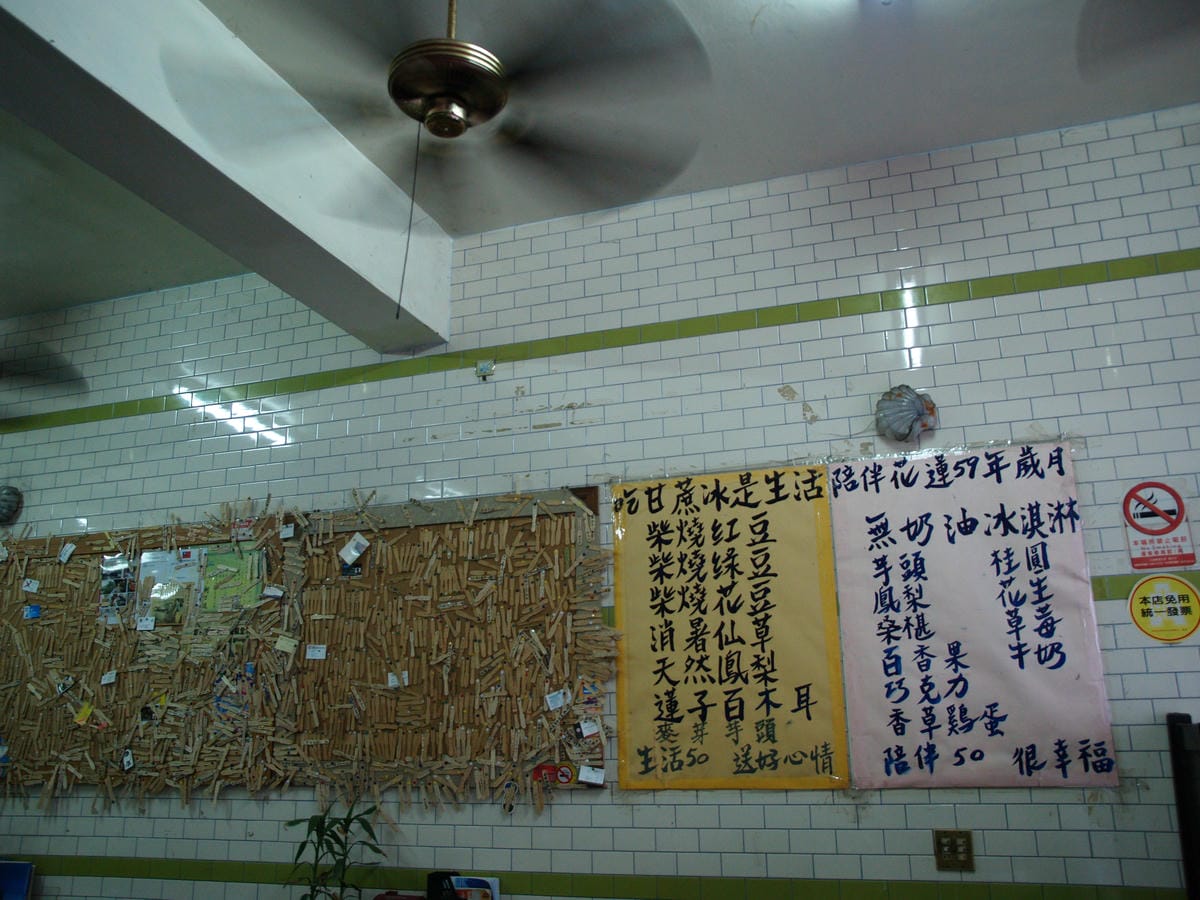 吃甘蔗冰是生活
柴燒紅豆
柴燒綠豆
柴燒花豆
消暑仙草
天然鳳梨
蓮子百木耳
麥芽芋頭
生活50 送好心情
陪伴花蓮59年歲月
無奶油冰淇淋
芋頭 桂圓
鳳梨 花生
桑椹 草莓
百香果 牛奶
巧克力
香草雞蛋
陪伴50 很幸福
本場所禁止吸菸
No Smoking
本店免用
統一發票